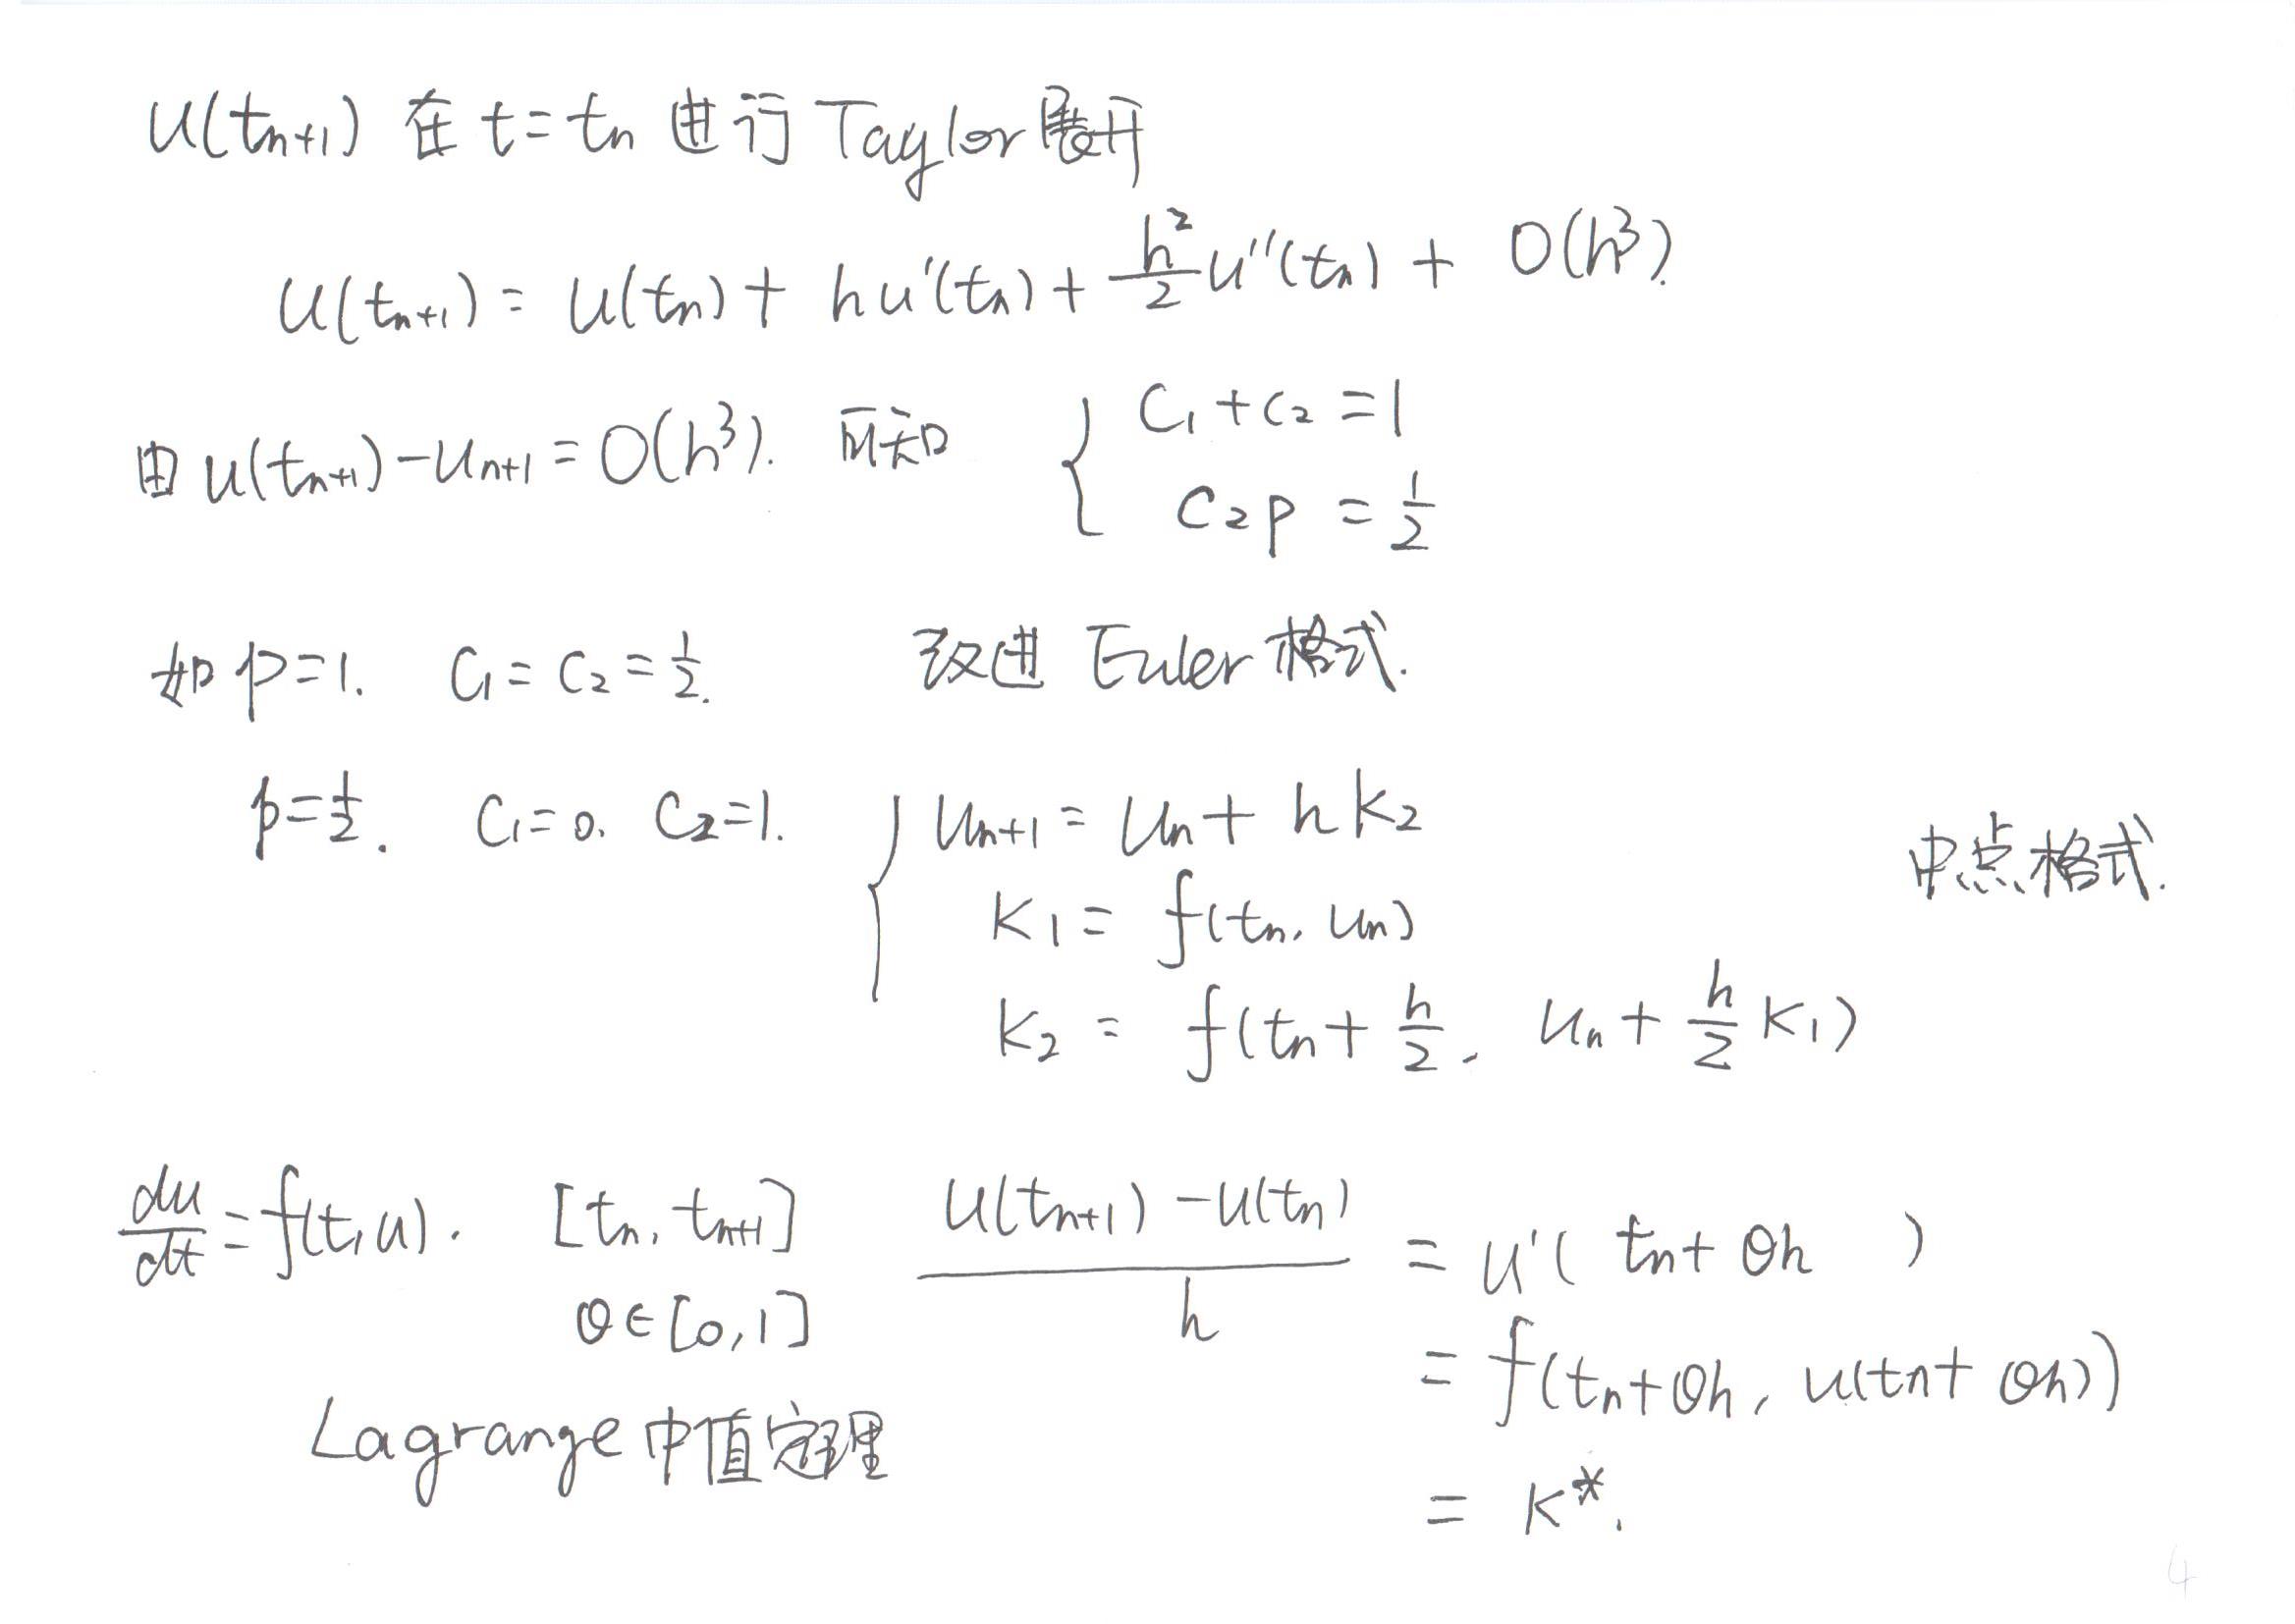 u(tn+1) 在 t=tn 进行 Taylor展开
u(tn+1) = u(tn) + hu'(tn) + h²/2 u''(tn) + O(h³).
由 u(tn+1) - un+1 = O(h³). 可知 { C1 + C2 = 1
C2p = 1/2
如 p=1. C1 = C2 = 1/2. 改进 Euler 格式.
p=1/2. C1=0. C2=1. { un+1 = un + hK2 中点格式.
K1 = f(tn, un)
K2 = f(tn + h/2, un + h/2 K1)
du/dt = f(t,u). [tn, tn+1] (u(tn+1) - u(tn))/h = u'( tn + θh )
θ∈[0,1] = f(tn+θh, u(tn+θh))
Lagrange 中值定理 = K*.
4